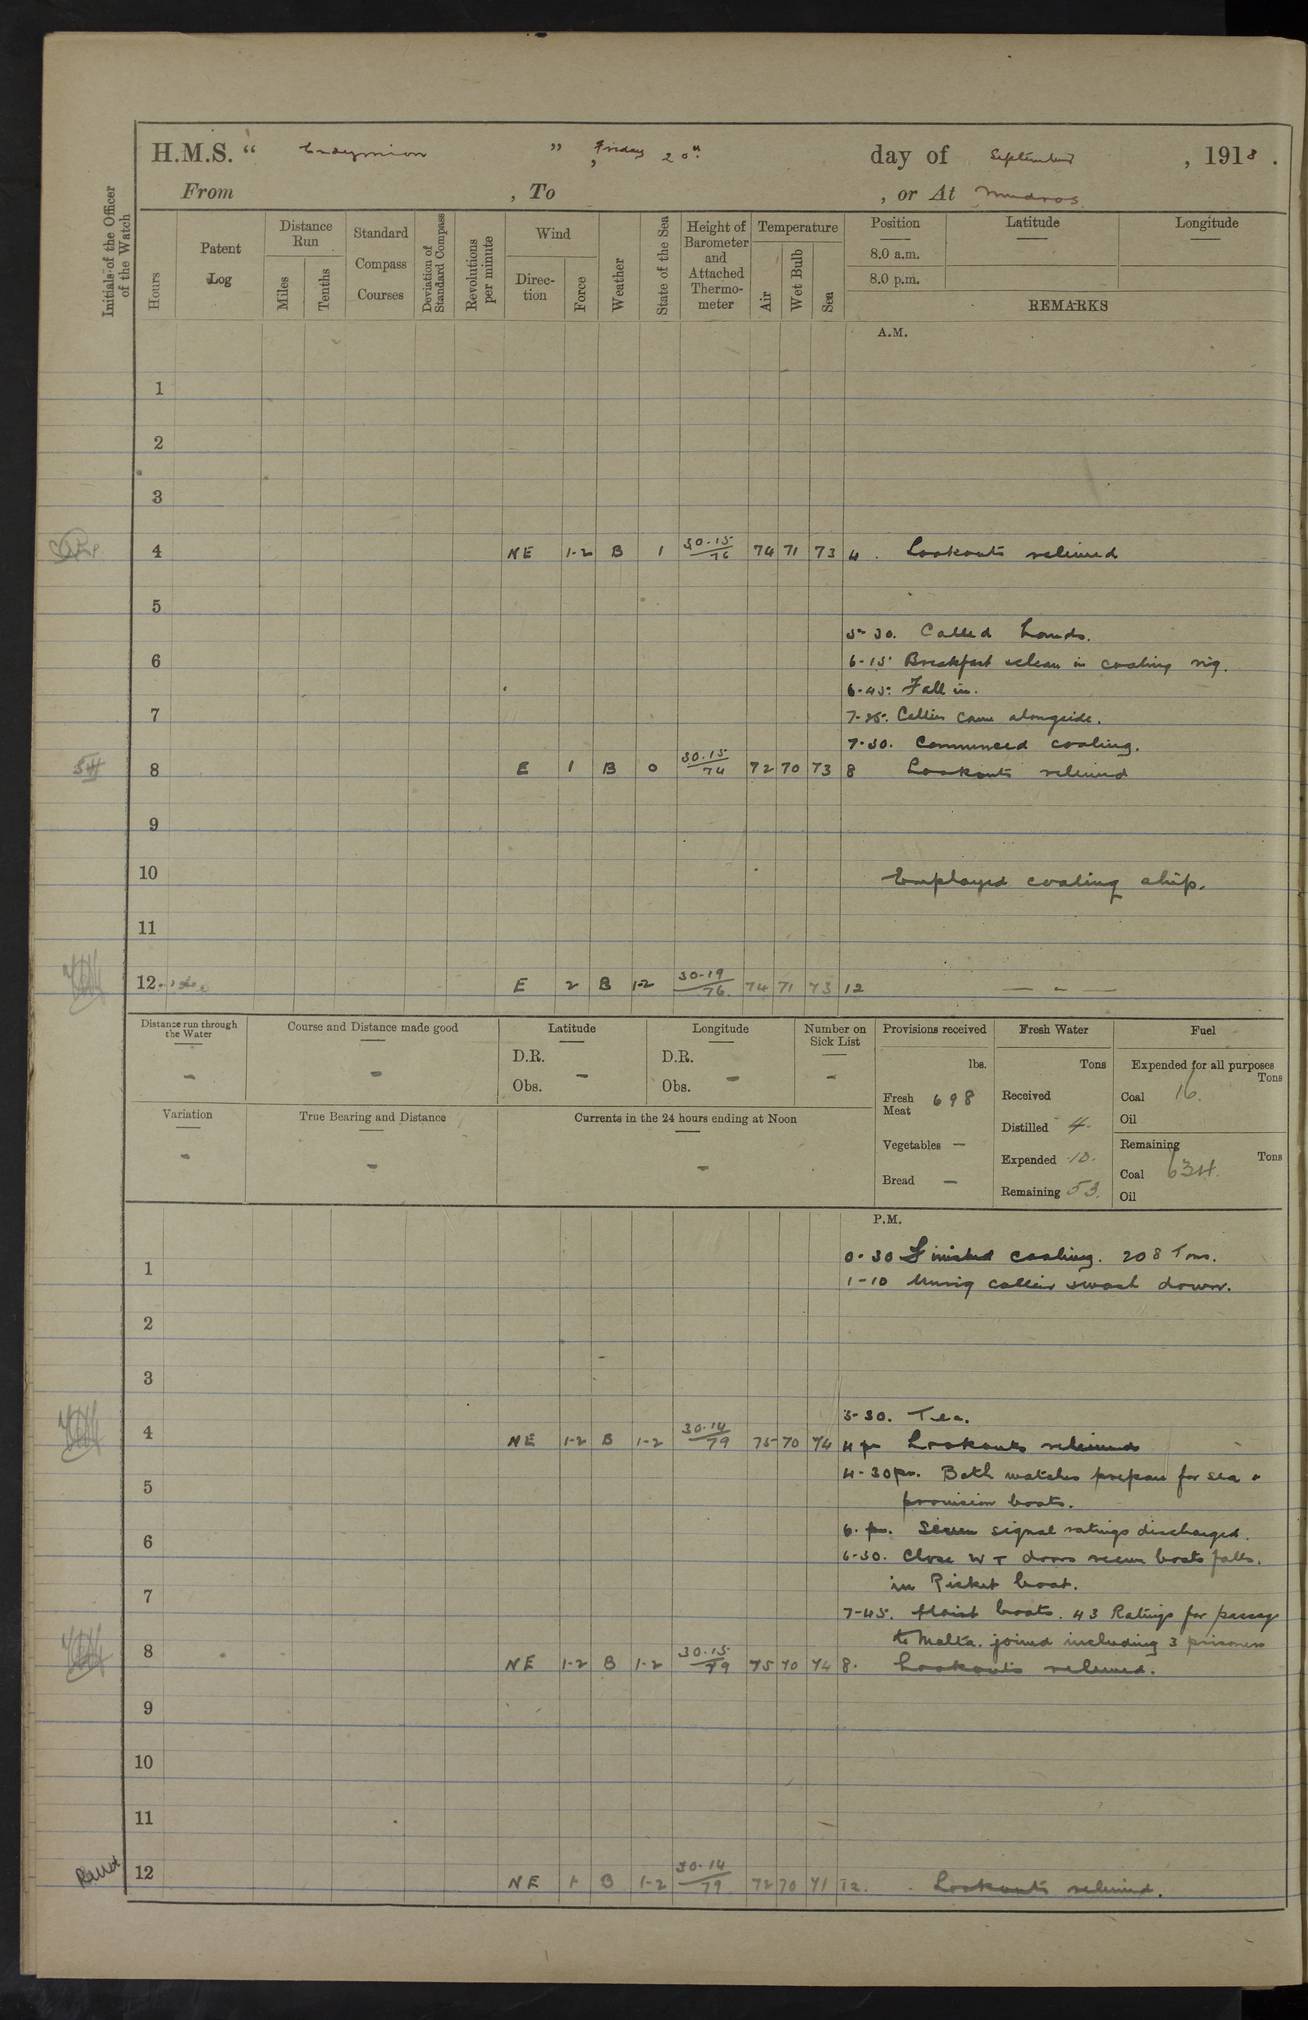 H.M.S. “ Endymion ” , Friday 20th day of September , 1918 .
From , To , or At Mudros
Initials of the Officer of the Watch
Hours
Patent Log
Distance Run
Miles
Tenths
Standard Compass Courses
Deviation of Standard Compass
Revolutions per minute
Wind
Direction
Force
Weather
State of the Sea
Height of Barometer and Attached Thermometer
Temperature
Air
Wet Bulb
Sea
Position
8.0 a.m.
8.0 p.m.
Latitude
Longitude
REMARKS
A.M.
1
2
3
4 NE 1-2 B 1 30.15/76 74 71 73 4. Lookouts relieved
5
5-30. Called hands.
6
6-15 Breakfast & clean in coaling rig.
6-45. Fall in.
7
7-25. Collier came alongside.
7-30. Commenced coaling.
8 E 1 B 0 30.15/74 72 70 73 8 Lookouts relieved
9
10 Employed coaling ship.
11
12 E 2 B 1-2 30.19/76 74 71 73 12 — - —
Distance run through the Water
-
Course and Distance made good
-
Latitude
D.R.
Obs. -
Longitude
D.R.
Obs. -
Number on Sick List
-
Variation
-
True Bearing and Distance
-
Currents in the 24 hours ending at Noon
-
Provisions received
lbs.
Fresh Meat 698
Vegetables —
Bread —
Fresh Water
Tons
Received
Distilled 4.
Expended 10.
Remaining 53.
Fuel
Expended for all purposes
Tons
Coal 16.
Oil
Remaining
Tons
Coal 634.
Oil
P.M.
0-30 Finished coaling. 208 Tons.
1
1-10 Unrig collier & wash down.
2
3
3-30. Tea.
4 NE 1-2 B 1-2 30.14/79 75 70 74 4 pm Lookouts relieved
4-30 pm. Both watches prepare for sea &
5
provision boats.
6. pm. Seven signal ratings discharged.
6
6-30. Close W T doors secure boats falls.
in Picket boat.
7
7-45. Hoist boats. 43 Ratings for passage
to Malta. joined including 3 prisoners
8 NE 1-2 B 1-2 30.15/79 75 70 74 8. Lookouts relieved.
9
10
11
12 NE 1 B 1-2 30.14/79 72 70 71 12. Lookouts relieved.